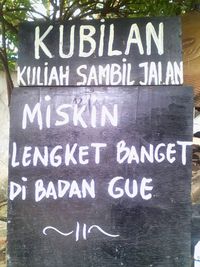 KUBILAN
KULIAH SAMBIL JALAN
MISKIN
LENGKET BANGET
Di BADAN GUE
~ 11 ~